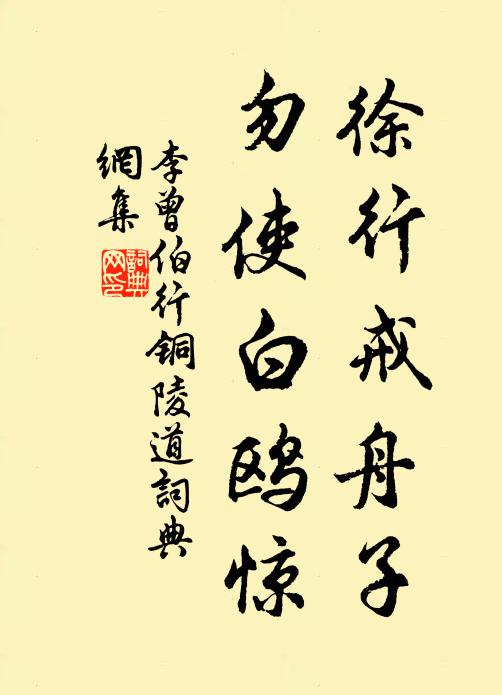 徐行戒舟子
勿使白鸥惊
李曾伯行铜陵道詞典
網集
詞典
网印